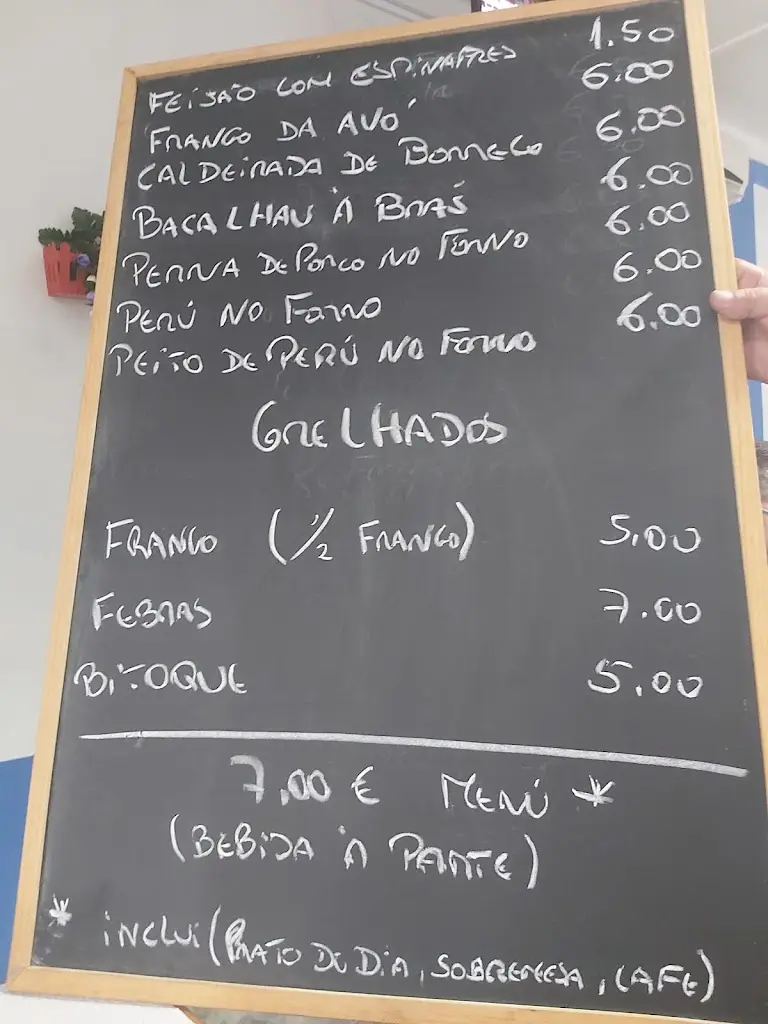 FEIJÃO COM ESPINAFRES 1.50
FRANGO DA AVÓ 6.00
CALDEIRADA DE BORREGO 6.00
BACALHAU À BRÁS 6.00
PERNA DE PORCO NO FORNO 6.00
PERÚ NO FORNO 6.00
PEITO DE PERÚ NO FORNO 6.00
GRELHADOS
FRANGO (1/2 FRANGO) 5,00
FEBRAS 7.00
BITOQUE 5.00
7,00 € MENÚ *
(BEBIDA À PARTE)
* INCLUI (PRATO DO DIA, SOBREMESA, CAFÉ)